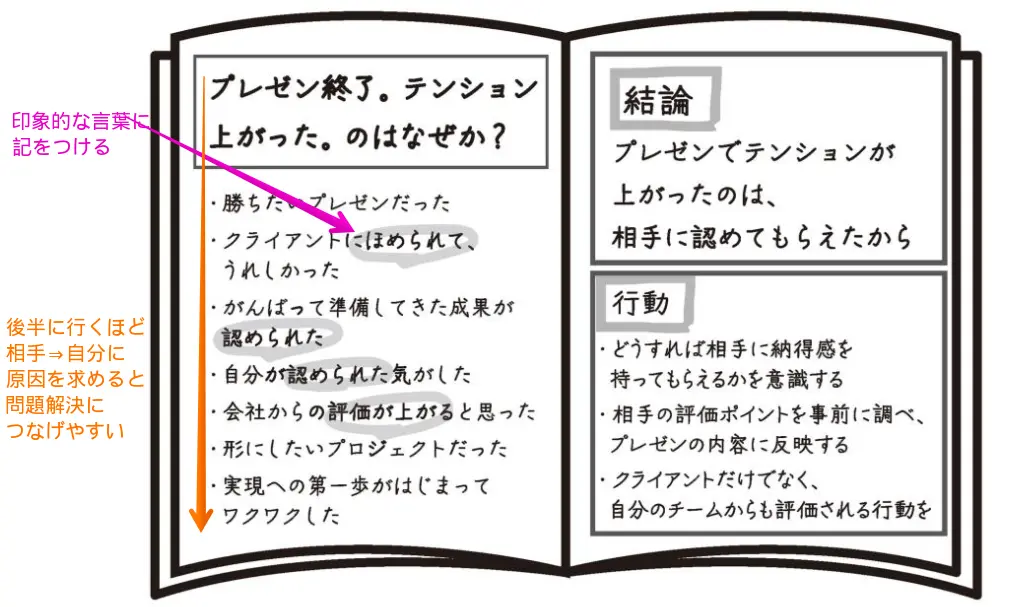 印象的な言葉に
記をつける
後半に行くほど
相手⇒自分に
原因を求めると
問題解決に
つなげやすい
プレゼン終了。テンション
上がった。のはなぜか？
・勝ちたいプレゼンだった
・クライアントにほめられて、
うれしかった
・がんばって準備してきた成果が
認められた
・自分が認められた気がした
・会社からの評価が上がると思った
・形にしたいプロジェクトだった
・実現への第一歩がはじまって
ワクワクした
結論
プレゼンでテンションが
上がったのは、
相手に認めてもらえたから
行動
・どうすれば相手に納得感を
持ってもらえるかを意識する
・相手の評価ポイントを事前に調べ、
プレゼンの内容に反映する
・クライアントだけでなく、
自分のチームからも評価される行動を